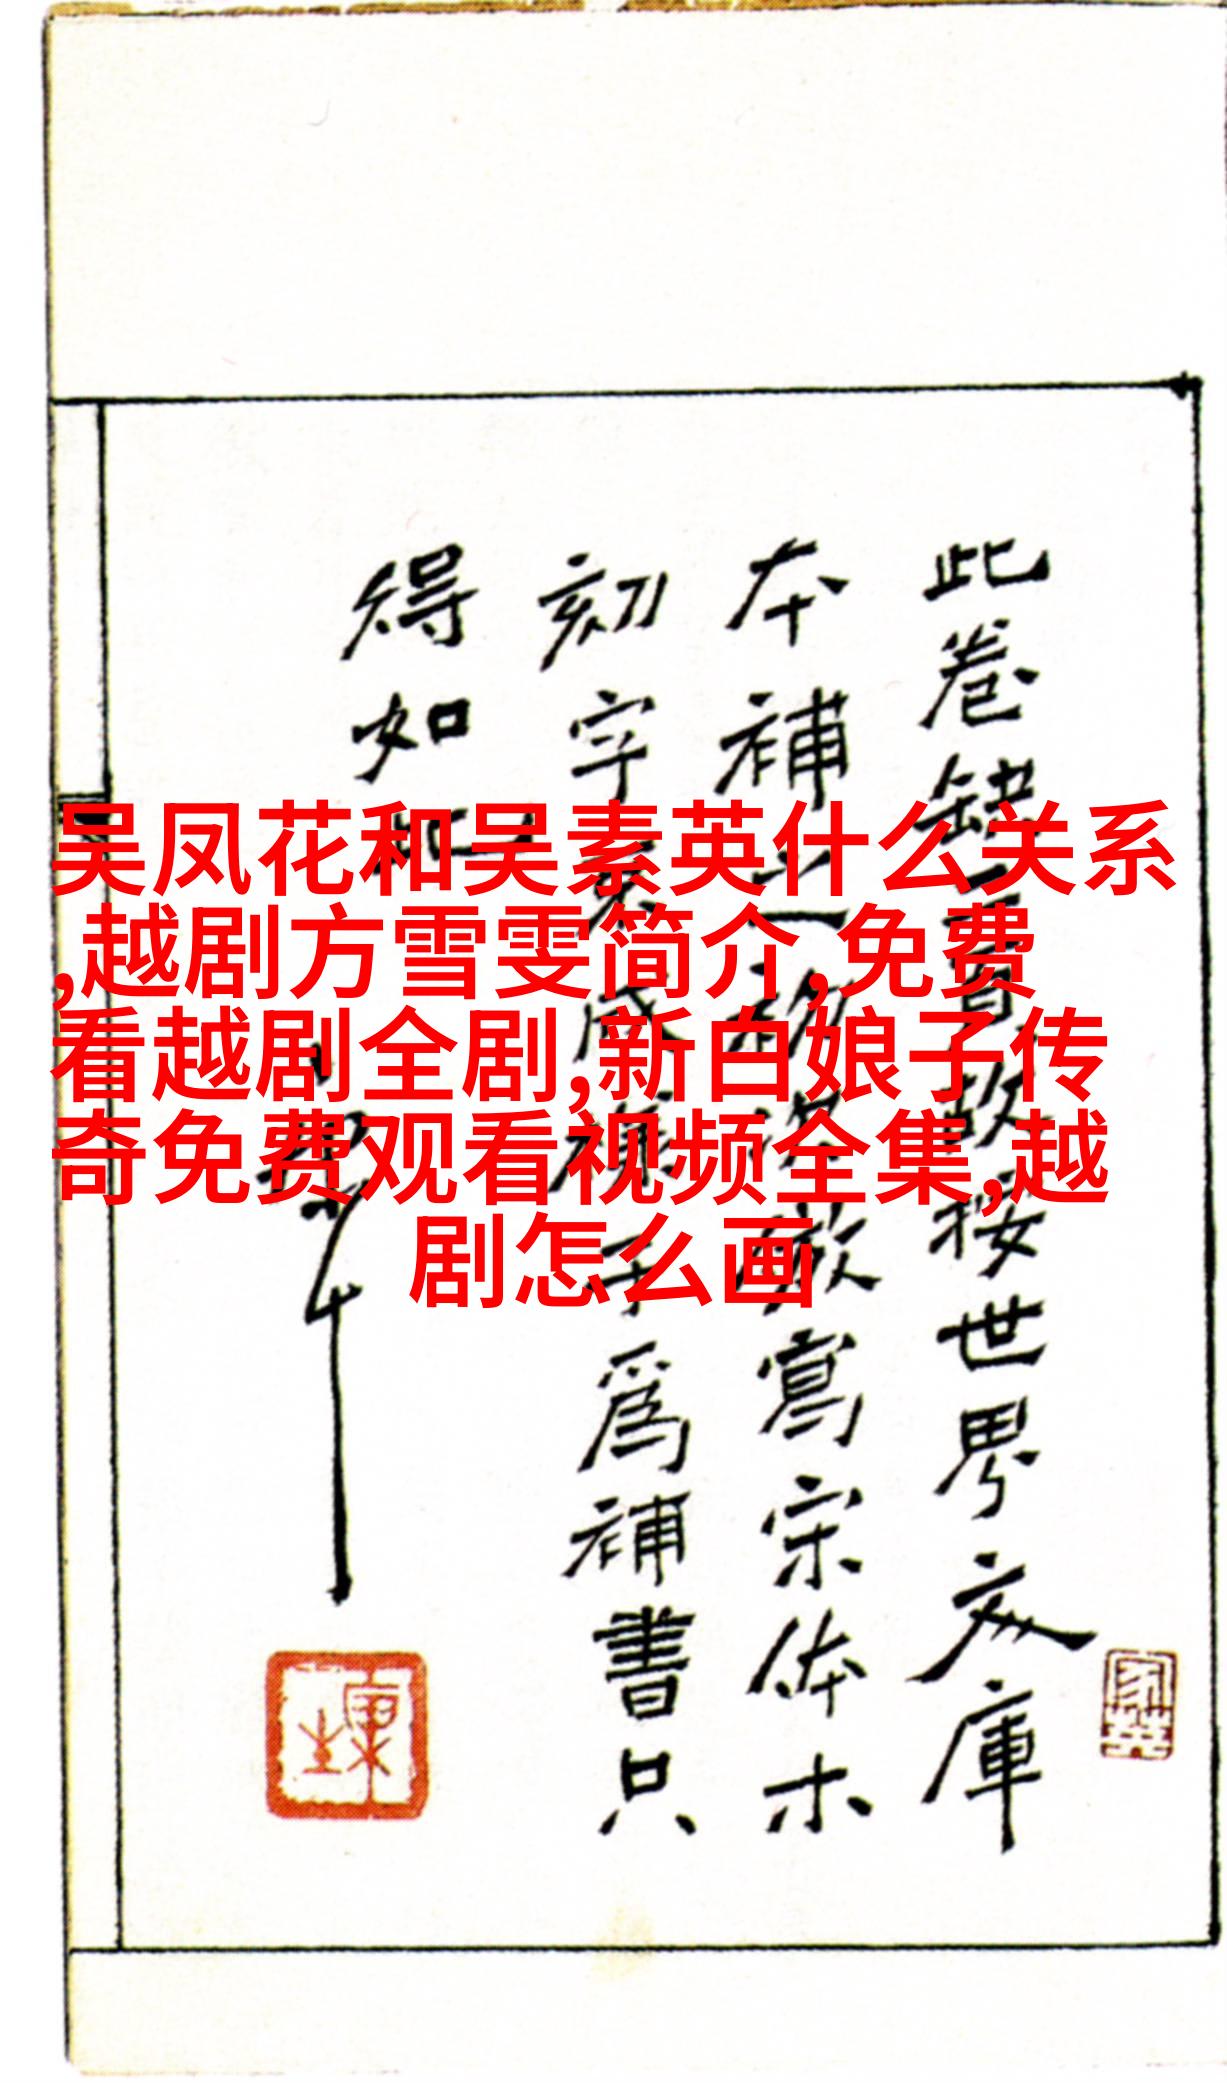 吴凤花和吴素英什么关系
,越剧方雪雯简介,免费
看越剧全剧,新白娘子传
奇免费观看视频全集,越
剧怎么画
此卷缺二首故按世界文庫
本補之初欲嚴寫宋体木
刻字素成様子爲補書只
得如此